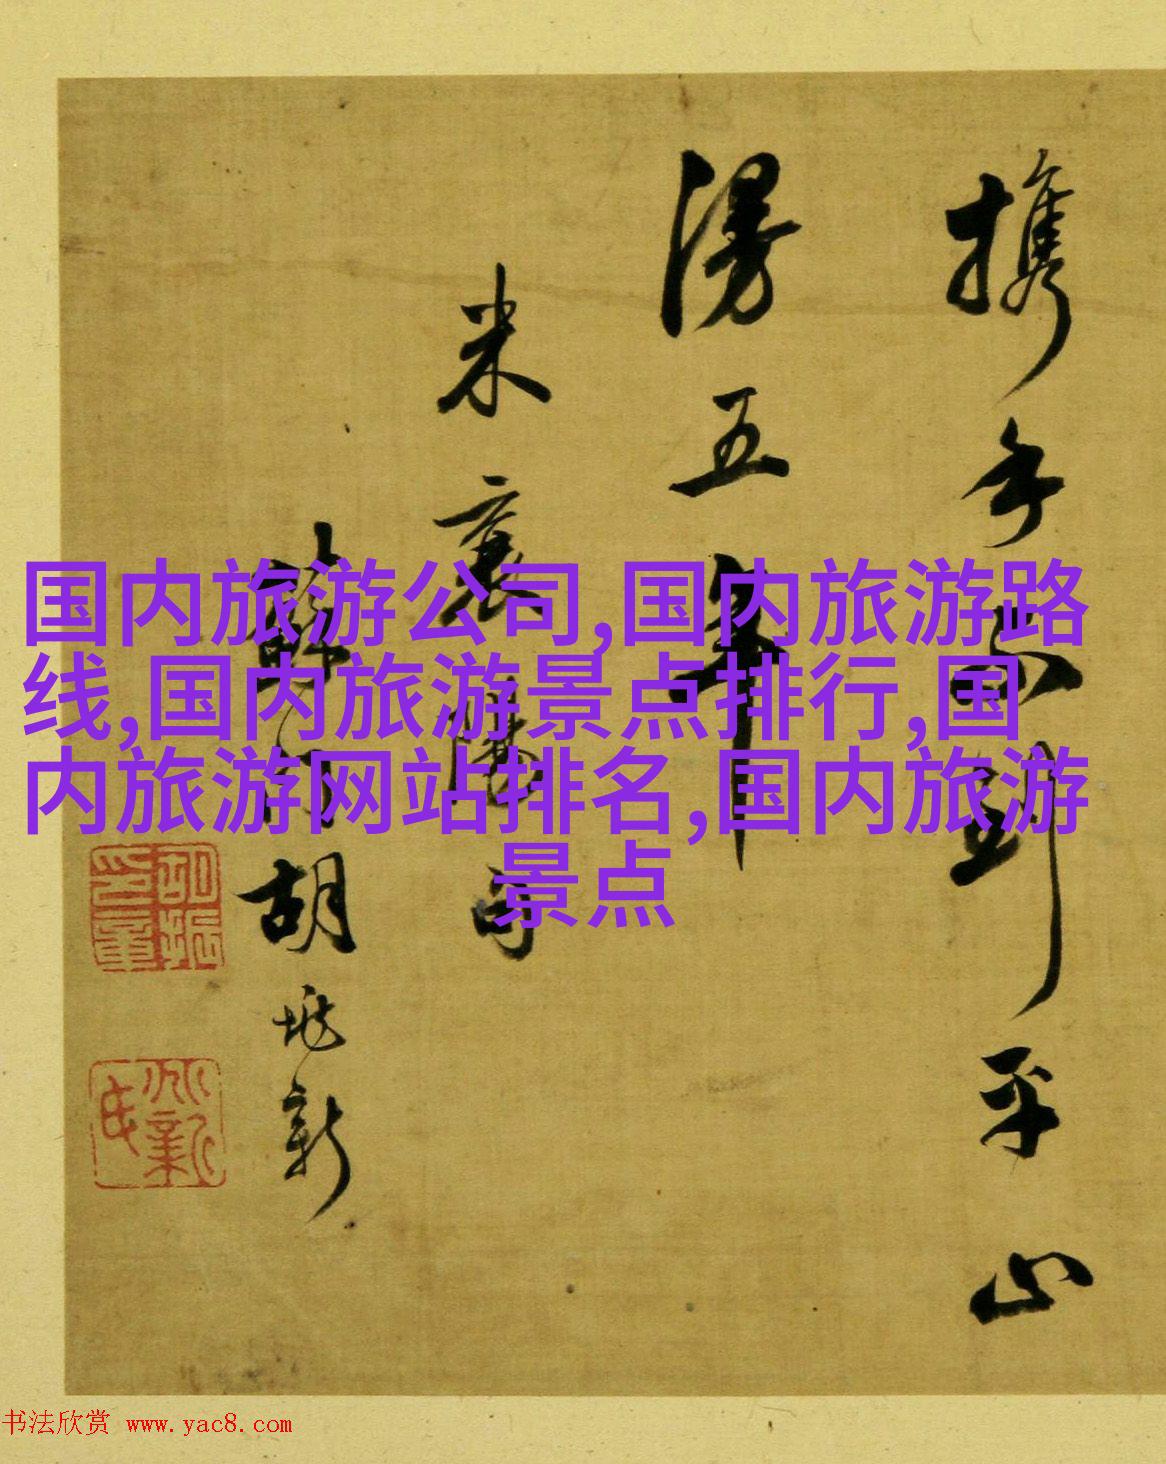 国内旅游公司,国内旅游路
线,国内旅游景点排行,国
内旅游网站排名,国内旅游
景点
携手不到平山
漫五年
米襄陽
胡 新
书法欣赏 www.yac8.com